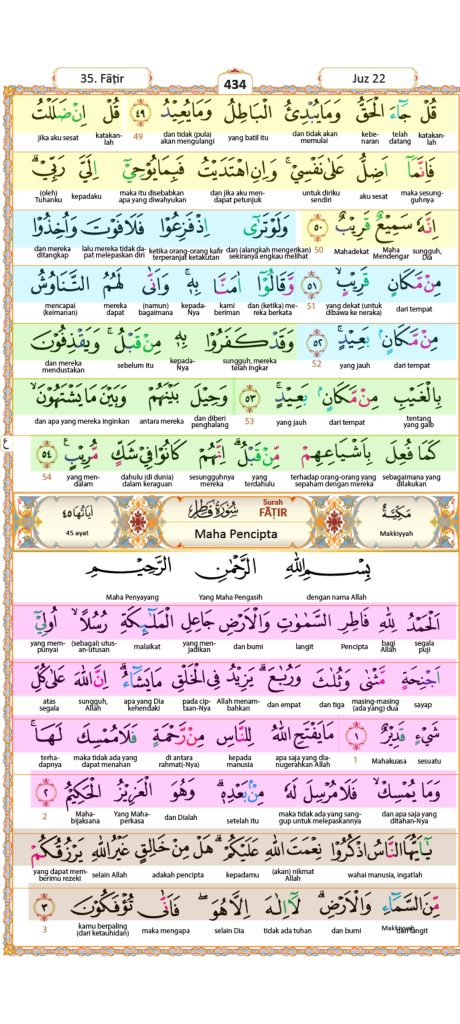 35. Fāṭir
434
Juz 22
قُلْ جَاۤءَ الْحَقُّ وَمَا يُبْدِئُ الْبَاطِلُ وَمَا يُعِيْدُ ٤٩ قُلْ اِنْ ضَلَلْتُ
katakan-lah telah datang kebe-naran dan tidak akan memulai yang batil itu dan tidak (pula) akan mengulangi 49 katakan-lah jika aku sesat
فَاِنَّمَآ اَضِلُّ عَلٰى نَفْسِيْ ۚ وَاِنِ اهْتَدَيْتُ فَبِمَا يُوْحِيْٓ اِلَيَّ رَبِّيْ ۗ
maka sesung-guhnya aku sesat untuk diriku sendiri dan jika aku men-dapat petunjuk maka itu disebabkan apa yang diwahyukan kepadaku (oleh) Tuhanku
اِنَّهٗ سَمِيْعٌ قَرِيْبٌ ٥٠ وَلَوْ تَرٰٓى اِذْ فَزِعُوْا فَلَا فَوْتَ وَاُخِذُوْا
sungguh, Dia Maha Mendengar Mahadekat 50 dan (alangkah mengerikan) sekiranya engkau melihat ketika orang-orang kafir terperanjat ketakutan lalu mereka tidak da-pat melepaskan diri dan mereka ditangkap
مِنْ مَّكَانٍ قَرِيْبٍ ۙ ٥١ وَّقَالُوْٓا اٰمَنَّا بِهٖ ۚ وَاَنّٰى لَهُمُ التَّنَاوُشُ
dari tempat yang dekat (untuk dibawa ke neraka) 51 dan (ketika) me-reka berkata kami beriman kepada-Nya (namun) bagaimana mereka dapat mencapai (keimanan)
مِنْ مَّكَانٍۢ بَعِيْدٍ ۚ ٥٢ وَقَدْ كَفَرُوْا بِهٖ مِنْ قَبْلُ ۚ وَيَقْذِفُوْنَ
dari tempat yang jauh 52 sungguh, mereka telah ingkar kepada-Nya sebelum itu dan mereka mendustakan
بِالْغَيْبِ مِنْ مَّكَانٍۢ بَعِيْدٍ ٥٣ وَحِيْلَ بَيْنَهُمْ وَبَيْنَ مَا يَشْتَهُوْنَ ۙ
tentang yang gaib dari tempat yang jauh 53 dan diberi penghalang antara mereka dan apa yang mereka inginkan
كَمَا فُعِلَ بِاَشْيَاعِهِمْ مِّنْ قَبْلُ ۗ اِنَّهُمْ كَانُوْا فِيْ شَكٍّ مُّرِيْبٍ ࣖ ٥٤
sebagaimana yang dilakukan terhadap orang-orang yang sepaham dengan mereka yang terdahulu sesungguhnya mereka dahulu (di dunia) dalam keraguan yang men-dalam 54
ع
مَكِّيَّةٌ سُوْرَةُ فَاطِرٍ اٰيَاتُهَا ٤٥
Makkiyyah Surah FĀṬIR 45 ayat
Maha Pencipta
بِسْمِ اللّٰهِ الرَّحْمٰنِ الرَّحِيْمِ
dengan nama Allah Yang Maha Pengasih Maha Penyayang
اَلْحَمْدُ لِلّٰهِ فَاطِرِ السَّمٰوٰتِ وَالْاَرْضِ جَاعِلِ الْمَلٰۤىِٕكَةِ رُسُلًا اُولِيْٓ
segala puji bagi Allah Pencipta langit dan bumi yang men-jadikan malaikat (sebagai) utus-an-utusan yang mem-punyai
اَجْنِحَةٍ مَّثْنٰى وَثُلٰثَ وَرُبٰعَ ۗ يَزِيْدُ فِى الْخَلْقِ مَا يَشَاۤءُ ۗ اِنَّ اللّٰهَ عَلٰى كُلِّ
sayap masing-masing (ada yang) dua dan tiga dan empat Allah menam-bahkan pada cip-taan-Nya apa yang Dia kehendaki sungguh, Allah atas segala
شَيْءٍ قَدِيْرٌ ١ مَا يَفْتَحِ اللّٰهُ لِلنَّاسِ مِنْ رَّحْمَةٍ فَلَا مُمْسِكَ لَهَا ۚ
sesuatu Mahakuasa 1 apa saja yang dia-nugerahkan Allah kepada manusia di antara rahmat(-Nya) maka tidak ada yang dapat menahan terha-dapnya
وَمَا يُمْسِكْۙ فَلَا مُرْسِلَ لَهٗ مِنْۢ بَعْدِهٖ ۗ وَهُوَ الْعَزِيْزُ الْحَكِيْمُ ٢
dan apa saja yang ditahan-Nya maka tidak ada yang sang-gup untuk melepaskannya setelah itu dan Dialah Yang Maha-perkasa Maha-bijaksana 2
يٰٓاَيُّهَا النَّاسُ اذْكُرُوْا نِعْمَتَ اللّٰهِ عَلَيْكُمْ ۗ هَلْ مِنْ خَالِقٍ غَيْرُ اللّٰهِ يَرْزُقُكُمْ
wahai manusia, ingatlah (akan) nikmat Allah kepadamu adakah pencipta selain Allah yang dapat mem-berimu rezeki
مِّنَ السَّمَاۤءِ وَالْاَرْضِ ۗ لَآ اِلٰهَ اِلَّا هُوَ ۖ فَاَنّٰى تُؤْفَكُوْنَ ٣
dari langit Makkiyyah dan bumi tidak ada tuhan selain Dia maka mengapa kamu berpaling (dari ketauhidan) 3